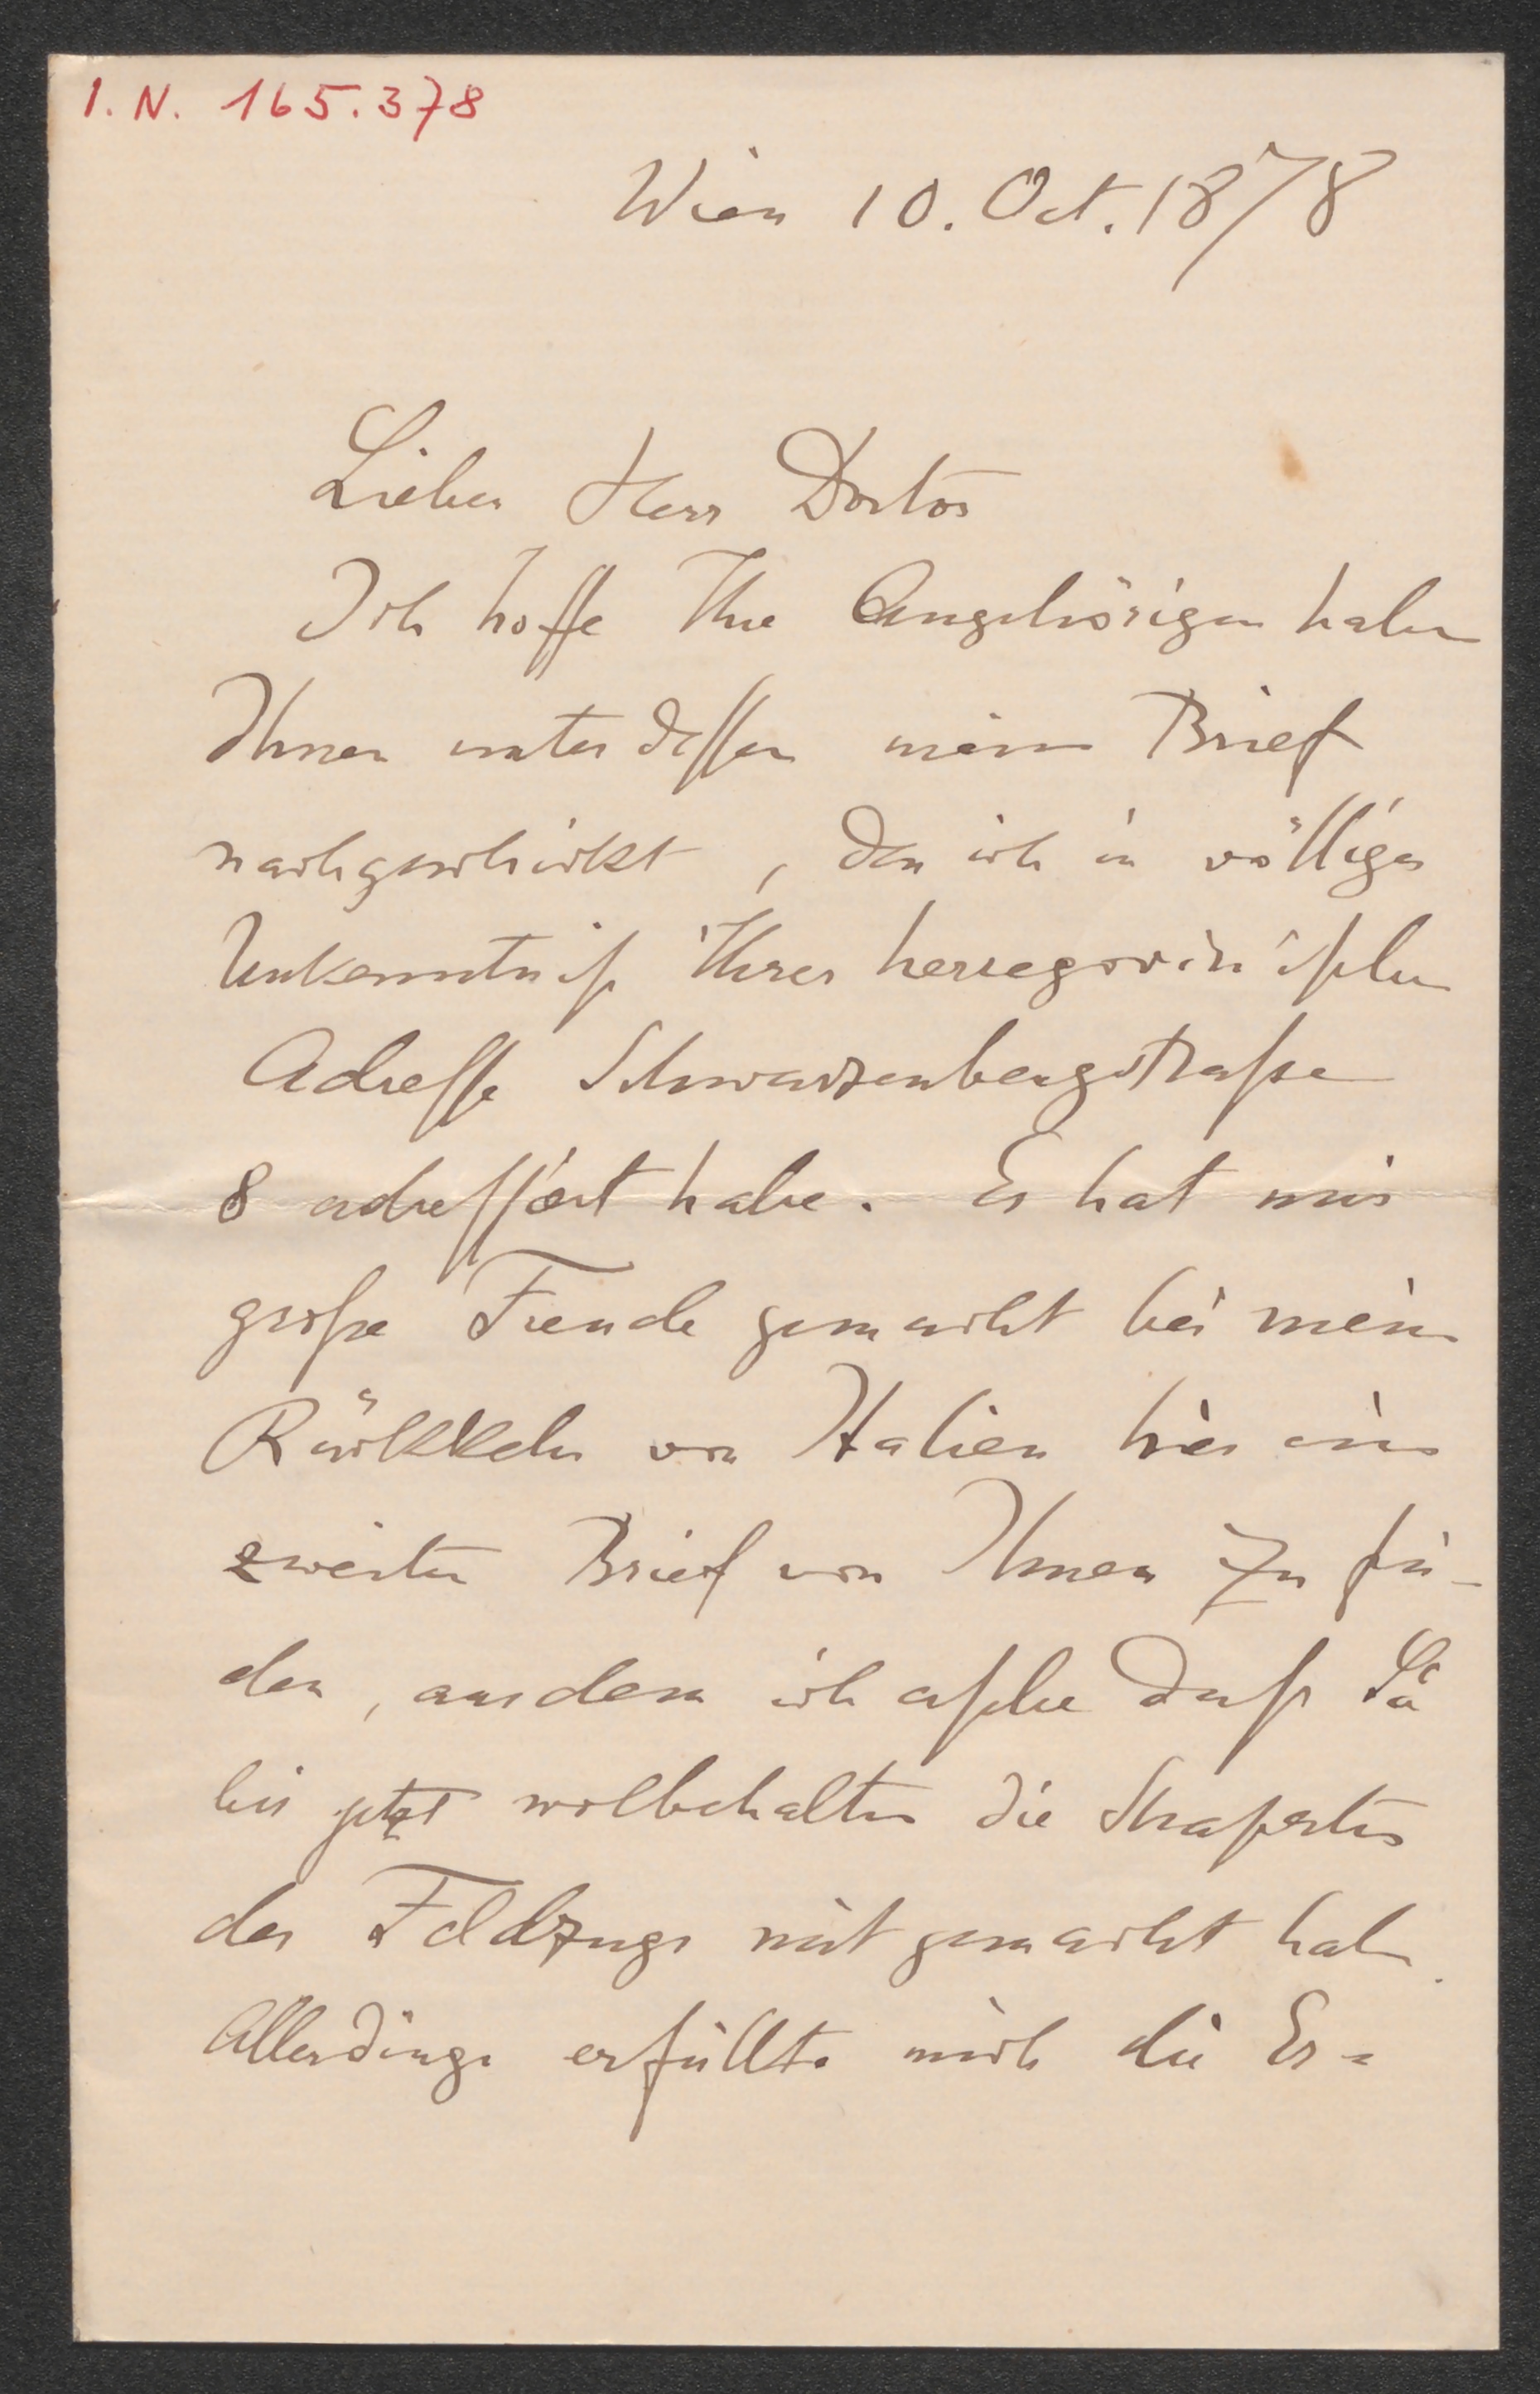 I. N. 165.378
Wien 10. Oct. 1878
Lieber Herr Doctor
Ich hoffe Ihre Angehörigen haben
Ihnen unterdessen meinen Brief
nachgeschickt, den ich in völliger
Unkenntniß Ihrer herzegovinischen
Adresse Schwarzenbergstraße
8 adressirt habe. Es hat mir
große Freude gemacht bei meiner
Rückkehr von Italien hier einen
zweiten Brief von Ihnen zu fin-
den, aus dem ich ersehe daß Sie
bis jetzt wolbehalten die Strapazen
des Feldzugs mitgemacht haben.
Allerdings erfüllte mich die Er=